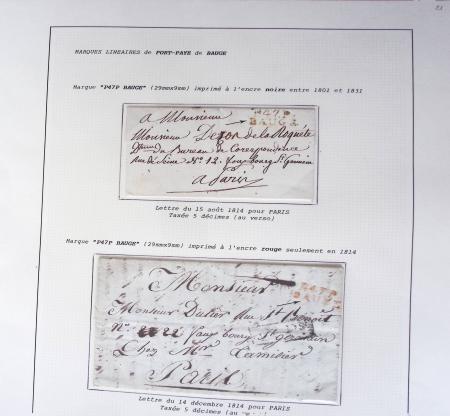 MARQUES LINEAIRES de PORT-PAYE de BAUGE
Marque "P47P BAUGE" (29mmx9mm) imprimé à l'encre noire entre 1802 et 1831
P47P
BAUGÉ
a Monsieur
Monsieur de la Roquête
du Bureau de Correspondance
Rue de Seine N° 12. faux bourg St Germain
a Paris
Lettre du 15 août 1814 pour PARIS
Taxée 5 décimes (au verso)
Marque "P47P BAUGE" (29mmx9mm) imprimé à l'encre rouge seulement en 1814
P47P
BAUGÉ
Monsieur
Monsieur Rue St Benoit
N° 22 faux bourg St germain
Chez Mr.
Paris
Lettre du 14 décembre 1814 pour PARIS
Taxée 5 décimes (au